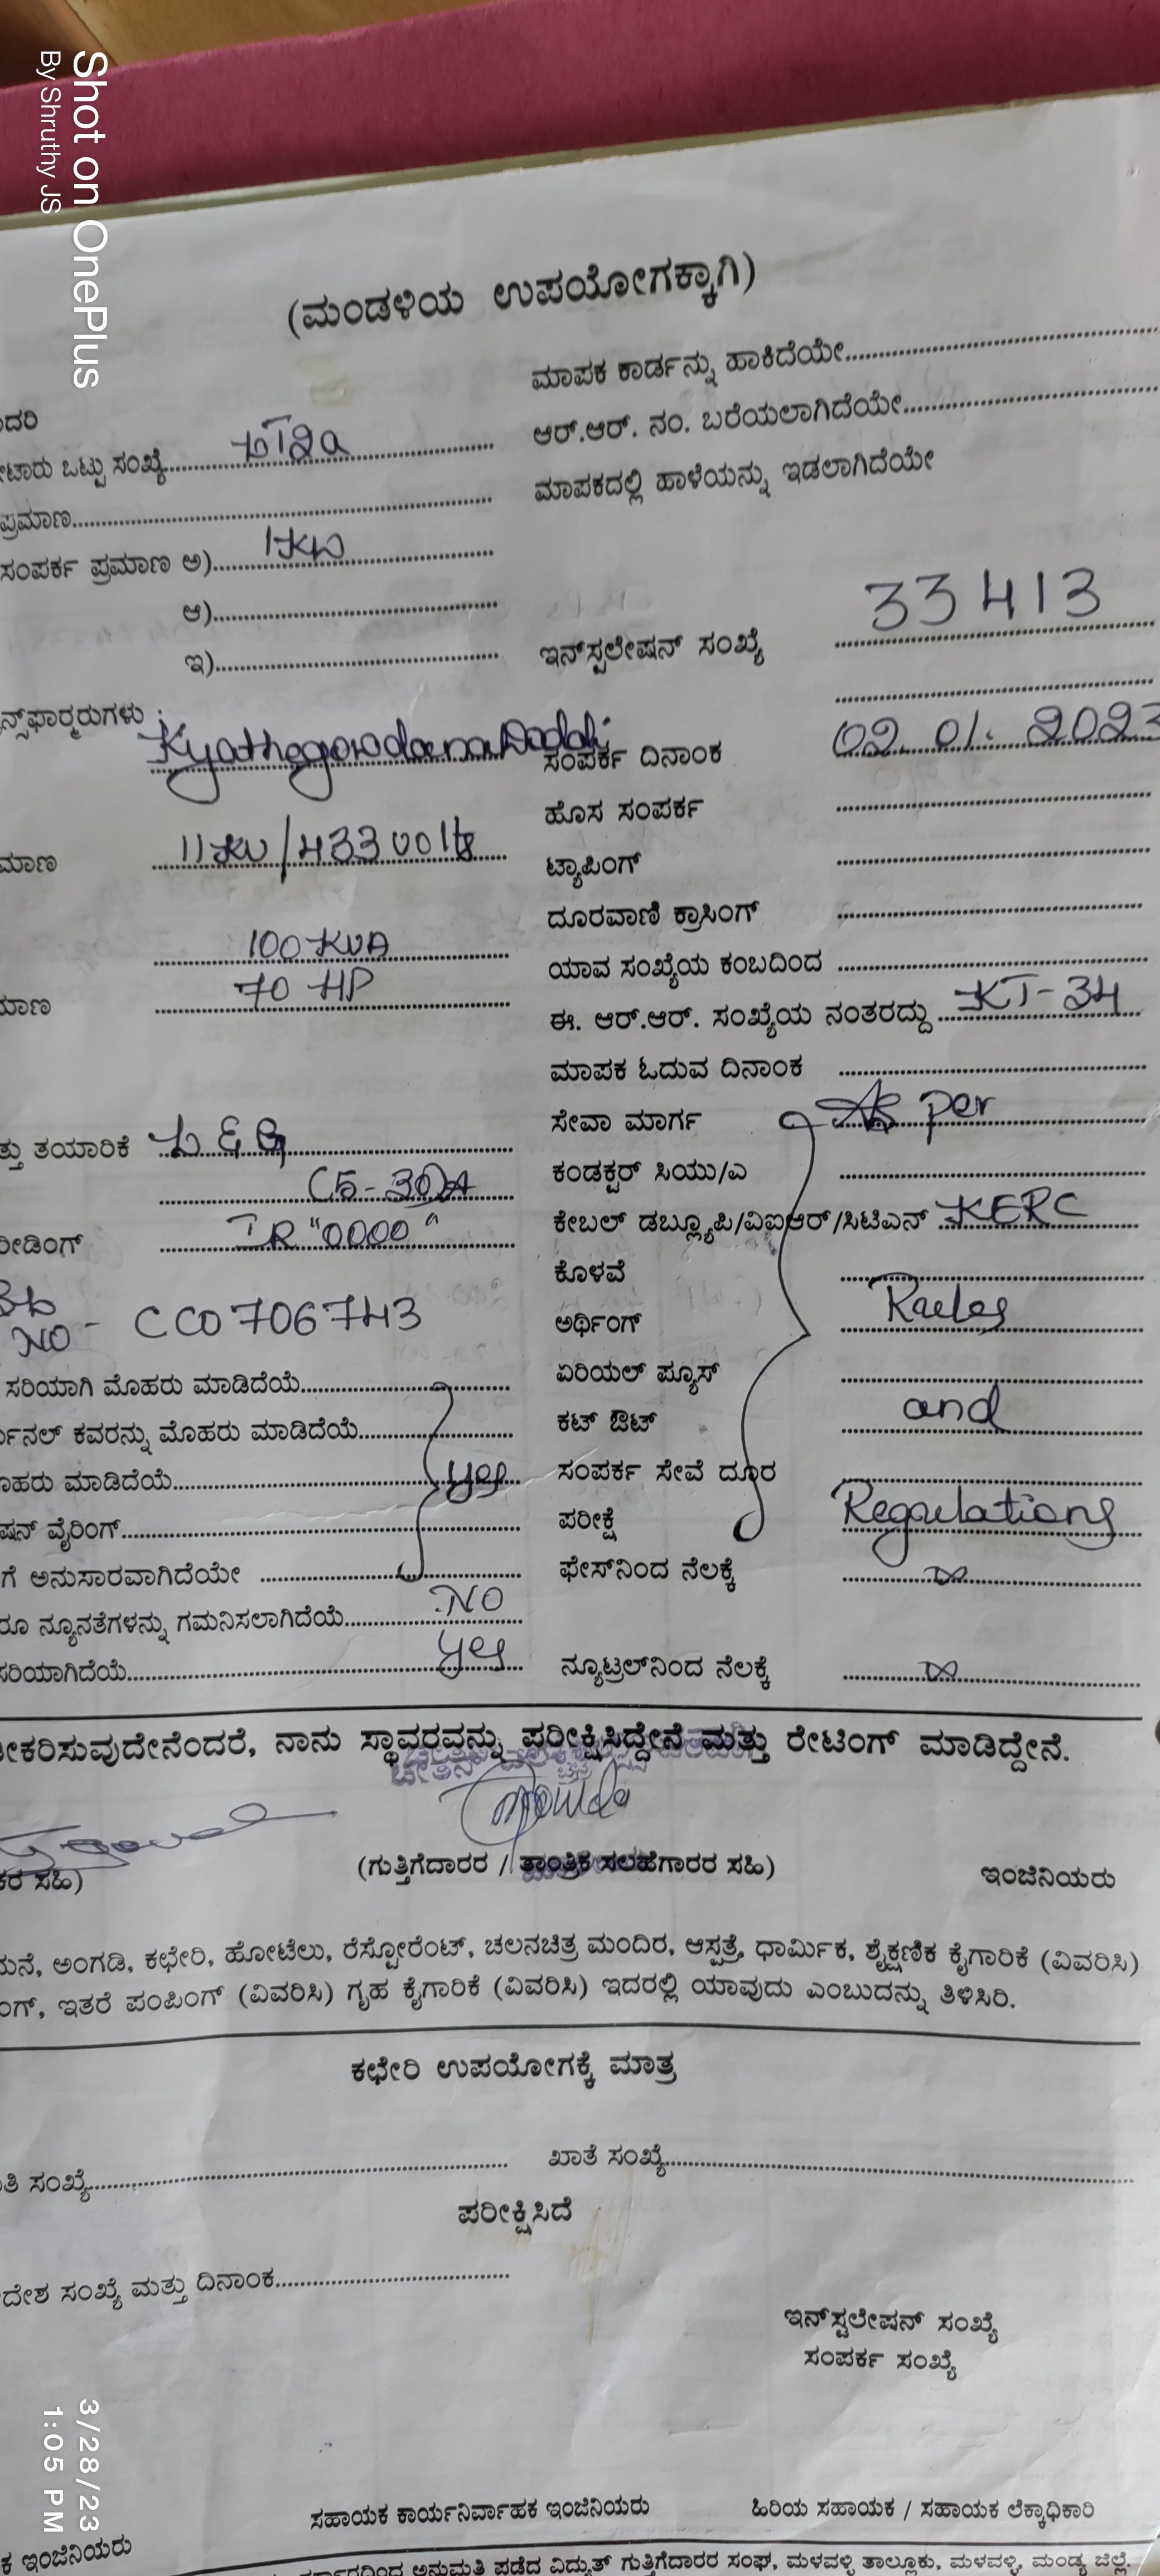 Shot on OnePlus
By Shruthy JS
(ಮಂಡಳಿಯ ಉಪಯೋಗಕ್ಕಾಗಿ)
ಮಾಪಕ ಕಾರ್ಡನ್ನು ಹಾಕಿದೆಯೇ
ದರಿ
ಆರ್.ಆರ್. ನಂ. ಬರೆಯಲಾಗಿದೆಯೇ
ಟಾರು ಒಟ್ಟು ಸಂಖ್ಯೆ
ಮಾಪಕದಲ್ಲಿ ಹಾಳೆಯನ್ನು ಇಡಲಾಗಿದೆಯೇ
ಪ್ರಮಾಣ
ಸಂಪರ್ಕ ಪ್ರಮಾಣ ಅ) 1KW
ಆ)
ಇ)
ಇನ್‌ಸ್ಟಲೇಷನ್ ಸಂಖ್ಯೆ 33413
ನ್ಸ್‌ಫಾರ್ಮರುಗಳು :
ಸಂಪರ್ಕ ದಿನಾಂಕ 02.01.2023
ಹೊಸ ಸಂಪರ್ಕ
ಮಾಣ 11KV/433 volts
ಟ್ಯಾಪಿಂಗ್
ದೂರವಾಣಿ ಕ್ರಾಸಿಂಗ್
100 KVA
ಯಾವ ಸಂಖ್ಯೆಯ ಕಂಬದಿಂದ
ಮಾಣ 70 HP
ಈ. ಆರ್.ಆರ್. ಸಂಖ್ಯೆಯ ನಂತರದ್ದು KT-34
ಮಾಪಕ ಓದುವ ದಿನಾಂಕ
ಸೇವಾ ಮಾರ್ಗ As per
ತ್ತು ತಯಾರಿಕೆ L & G
ಕಂಡಕ್ಟರ್ ಸಿಯು/ಎ
(5-30)A
ಕೇಬಲ್ ಡಬ್ಲ್ಯೂಪಿ/ವಿಐಆರ್/ಸಿಟಿಎನ್ KERC
ರೀಡಿಂಗ್ IR "0000"
ಕೊಳವೆ
NO - CC0706743
ಅರ್ಥಿಂಗ್ Rules
ಸರಿಯಾಗಿ ಮೊಹರು ಮಾಡಿದೆಯೆ
ಏರಿಯಲ್ ಪ್ಯೂಸ್
ರ್ಮಿನಲ್ ಕವರನ್ನು ಮೊಹರು ಮಾಡಿದೆಯೆ
ಕಟ್ ಔಟ್ and
ೊಹರು ಮಾಡಿದೆಯೆ yes
ಸಂಪರ್ಕ ಸೇವೆ ದೂರ
ಷನ್ ವೈರಿಂಗ್
ಪರೀಕ್ಷೆ Regulations
ಗೆ ಅನುಸಾರವಾಗಿದೆಯೇ
ಫೇಸ್‌ನಿಂದ ನೆಲಕ್ಕೆ ∞
ರೂ ನ್ಯೂನತೆಗಳನ್ನು ಗಮನಿಸಲಾಗಿದೆಯೆ NO
ಸರಿಯಾಗಿದೆಯೆ yes
ನ್ಯೂಟ್ರಲ್‌ನಿಂದ ನೆಲಕ್ಕೆ ∞
ೀಕರಿಸುವುದೇನೆಂದರೆ, ನಾನು ಸ್ಥಾವರವನ್ನು ಪರೀಕ್ಷಿಸಿದ್ದೇನೆ ಮತ್ತು ರೇಟಿಂಗ್ ಮಾಡಿದ್ದೇನೆ.
ಕರ ಸಹಿ)
(ಗುತ್ತಿಗೆದಾರರ / ತಾಂತ್ರಿಕ ಸಲಹೆಗಾರರ ಸಹಿ)
ಇಂಜಿನಿಯರು
ಮನೆ, ಅಂಗಡಿ, ಕಛೇರಿ, ಹೋಟೆಲು, ರೆಸ್ಟೋರೆಂಟ್, ಚಲನಚಿತ್ರ ಮಂದಿರ, ಆಸ್ಪತ್ರೆ, ಧಾರ್ಮಿಕ, ಶೈಕ್ಷಣಿಕ ಕೈಗಾರಿಕೆ (ವಿವರಿಸಿ)
ಂಗ್, ಇತರೆ ಪಂಪಿಂಗ್ (ವಿವರಿಸಿ) ಗೃಹ ಕೈಗಾರಿಕೆ (ವಿವರಿಸಿ) ಇದರಲ್ಲಿ ಯಾವುದು ಎಂಬುದನ್ನು ತಿಳಿಸಿರಿ.
ಕಛೇರಿ ಉಪಯೋಗಕ್ಕೆ ಮಾತ್ರ
ತಿ ಸಂಖ್ಯೆ
ಖಾತೆ ಸಂಖ್ಯೆ
ಪರೀಕ್ಷಿಸಿದೆ
ದೇಶ ಸಂಖ್ಯೆ ಮತ್ತು ದಿನಾಂಕ
ಇನ್‌ಸ್ಟಲೇಷನ್ ಸಂಖ್ಯೆ
ಸಂಪರ್ಕ ಸಂಖ್ಯೆ
3/28/23
1:05 PM
ಸಹಾಯಕ ಕಾರ್ಯನಿರ್ವಾಹಕ ಇಂಜಿನಿಯರು
ಹಿರಿಯ ಸಹಾಯಕ / ಸಹಾಯಕ ಲೆಕ್ಕಾಧಿಕಾರಿ
ಕ ಇಂಜಿನಿಯರು
ಅನುಮತಿ ಪಡೆದ ವಿದ್ಯುತ್ ಗುತ್ತಿಗೆದಾರರ ಸಂಘ, ಮಳವಳ್ಳಿ ತಾಲ್ಲೂಕು, ಮಳವಳ್ಳಿ, ಮಂಡ್ಯ ಜಿಲ್ಲೆ.